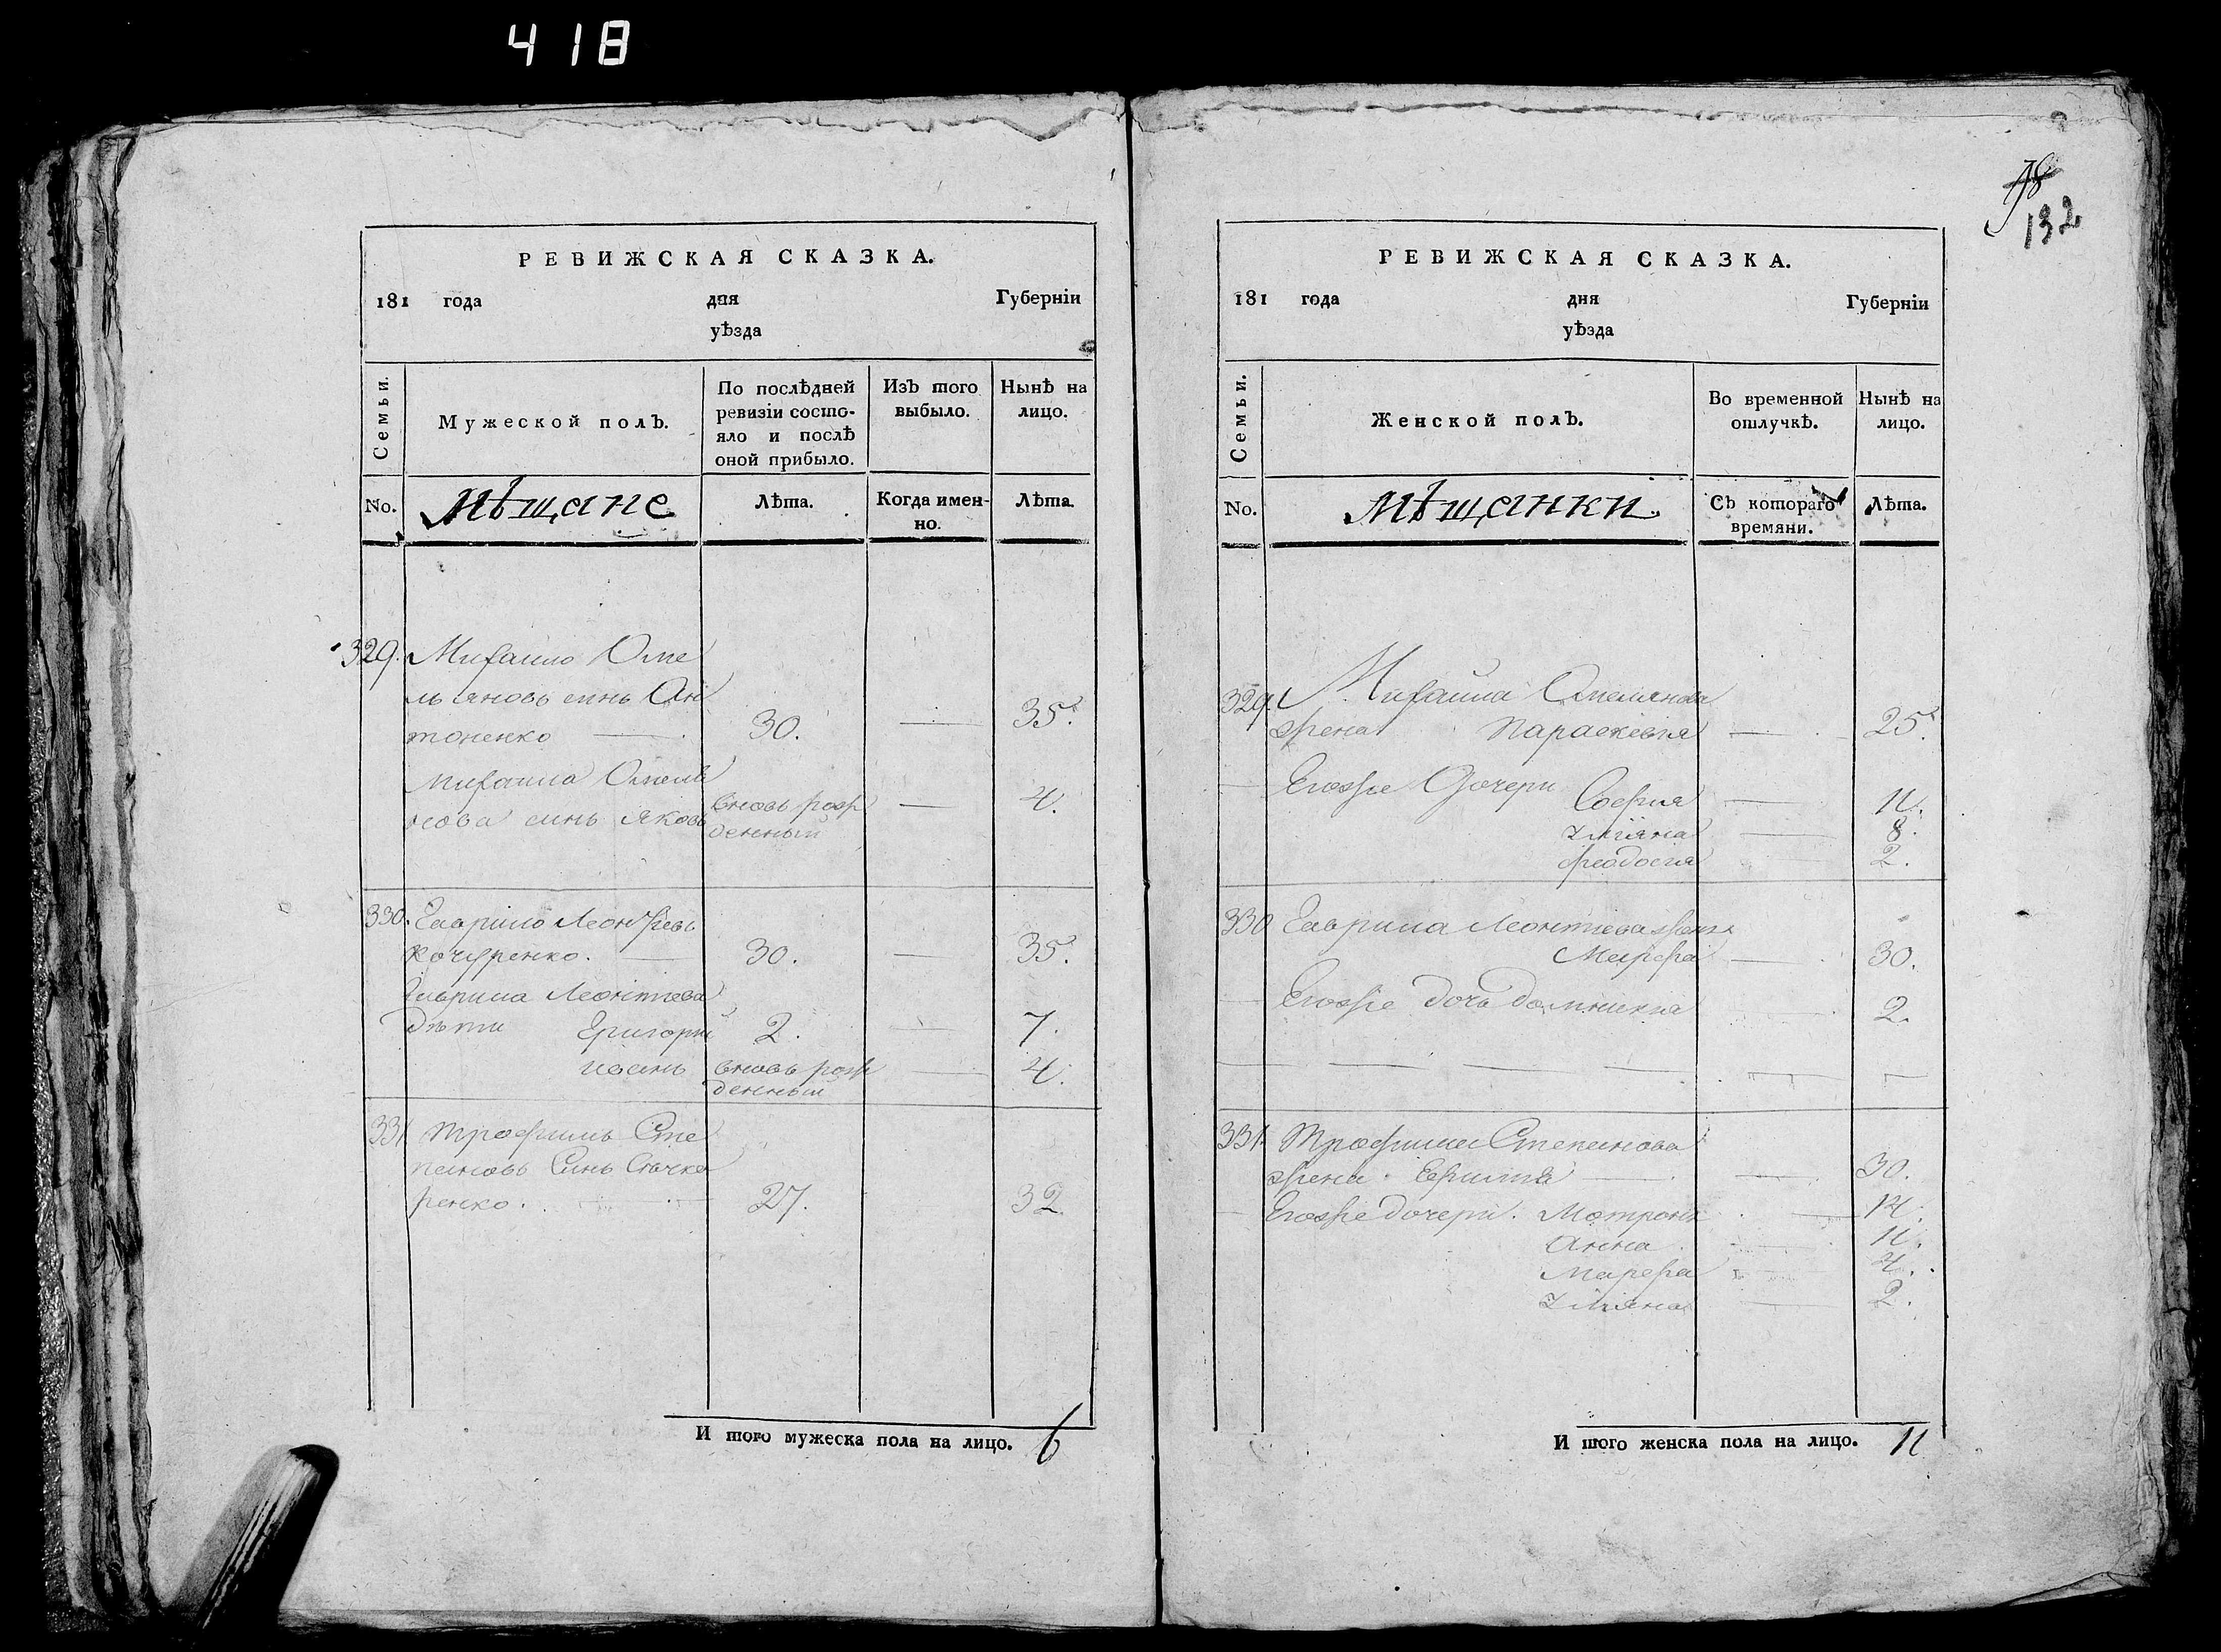 418
РЕВИЖСКАЯ СКАЗКА.
181 года дня Губерніи
уѣзда
Семьи.
Мужеской полъ.
По послѣдней ревизіи состо-
яло и послѣ оной прибыло.
Изъ того выбыло.
Нынѣ на лицо.
No.
мѣщане
Лѣта.
Когда имен-
но.
Лѣта.
329. Михайло Оме
льяновъ синъ Ан
тоненко — 30. — 35.
Михайла Омелья
нова синъ Яковъ вновь рож
денный — 4.
330. Гаврило Леонтіевъ
Кочуренко. — 30. — 35.
Гаврила Леонтіева
дѣти Григорій 2. — 7.
Иванъ вновь рож
денный — 4.
331 Трофимъ Сте
пановъ Синъ
ренко. 27. 32
И того мужеска пола на лицо. 6
78
132
РЕВИЖСКАЯ СКАЗКА.
181 года дня Губерніи
уѣзда
Семьи.
Женской полъ.
Во временной отлучкѣ.
Нынѣ на лицо.
No.
мѣщанки.
Съ котораго времяни.
Лѣта.
329. Михайла Омелянова
жена Параскевія — 25.
— Егожъ Дочери Софія — 11.
Уліяна — 8.
Феодосія — 2.
330 Гаврила Леонтіева жена
Марфа — 30.
— Егожъ дочь Домникія 2.
331. Трофима Степанова
жена — 30.
— Егожъ дочери. Мотрона — 14.
Анна — 11.
Марфа 4.
Уліяна — 2.
И того женска пола на лицо. 11